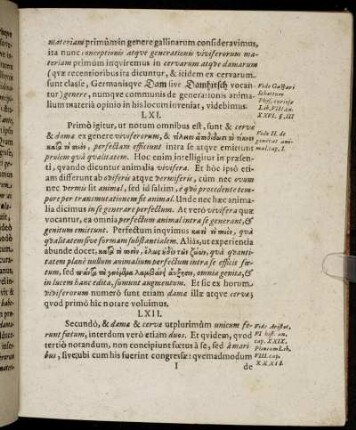 materiam primùm in genere gallinarum consideravimus,
ita nunc conceptionis atque generationis viviferorum ma-
teriam primùm inquiremus in cervarum atque damarum
(quæ recentioribus ita dicuntur, & itidem ex cervarum
sunt classe, Germanisque Dam sive Damhirsch vocan-
tur) genere, numque communis de generationis anima-
lium materiâ opinio in his locum inveniat, videbimus.
LXI.
Primò igitur, ut notum omnibus est, sunt & cervæ
& damæ ex genere viviferorum, &
perfectum efficiunt intra se atque emittunt
prolem quâ qualitatem. Hoc enim intelligitur in præsen-
ti, quando dicuntur animalia vivifera. Et hoc ipsô et-
iam differunt ab oviferis atque vermiferis, cum nec ovum
nec vermis sit animal, sed id saltim, è quô procedente tem-
pore per transmutationem fit animal. Unde nec hæc anima-
lia dicimus in se generare perfectum. At verò vivifera quæ
vocantur, ea omnia perfectum animal intra se generant, &
genitum emittunt. Perfectum inquimus quâ
qualitatem sive formam substantialem. Aliàs, ut experientia
abunde docet, quâ quanti-
tatem planè nullum animalium perfectum intra se efficit fœ-
tum, sed omnia genita, &
in lucem hanc edita, sumunt augmentum. Et sic ex horom
viviferorum numerô sunt etiam damæ illæ atque cervæ;
quod primò hic notare voluimus.
LXII.
Secundò, & damæ & cervæ utplurimùm unicum fe-
runt fœtum, interdum verò etiam duos. Et quidem, quod
tertiò notandum, non concipiunt fœtus à se, sed à mari-
bus, sive ubi cum his fuerint congressæ: quemadmodum
I de
Vide II. de
generat. ani-
mal. cap. I.
Vide Aristot.
VI hist. an.
cap. XXIX.
Plinium Lib.
VIII. cap.
XXXII.